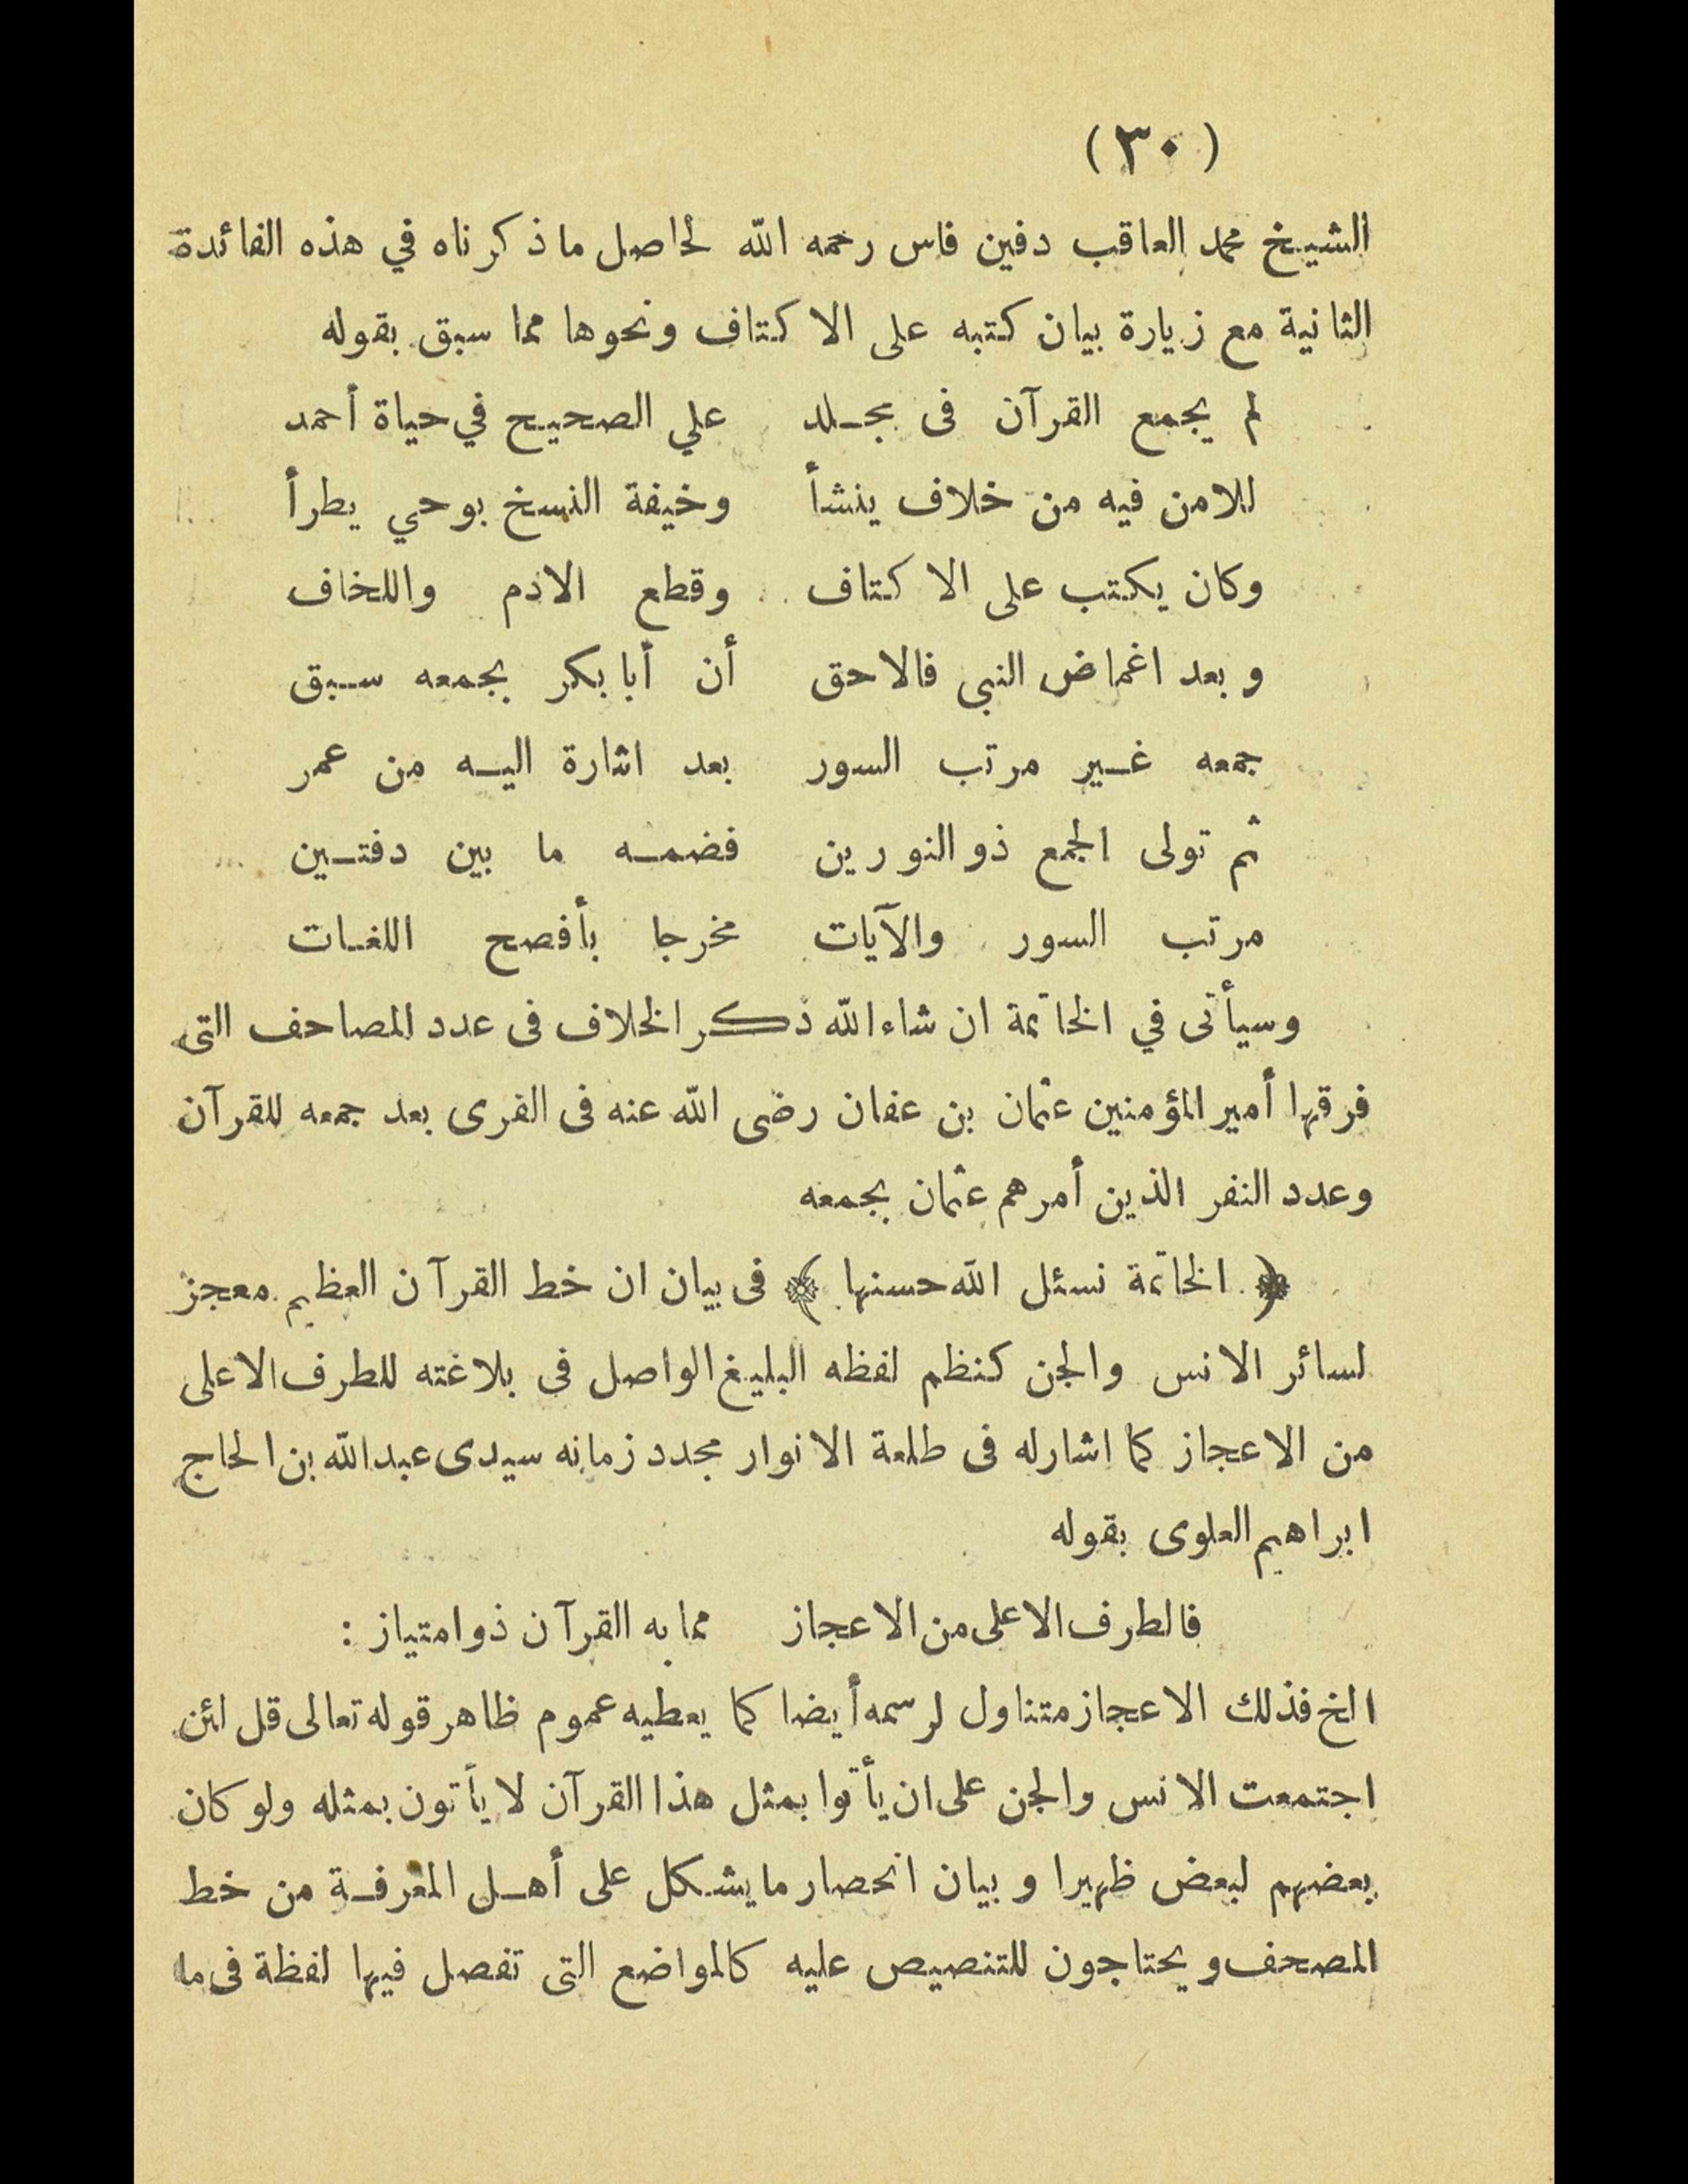 (٣٠)
الشيخ محمد العاقب دفين فاس رحمه الله لحاصل ماذكرناه في هذه الفائدة
الثانية مع زيارة بيان كتبه على الاكتاف ونحوها مما سبق بقوله
لم يجمع القرآن فى مجلد علي الصحيح في حياة أحمد
للامن فيه من خلاف ينشأ وخيفة النسخ بوحي يطرأ
وكان يكتب على الاكتاف وقطع الادم واللخاف
وبعد اغماض النبى فالاحق أن أبا بكر بجمعه سبق
جمعه غير مرتب السور بعد اشارة اليه من عمر
ثم تولى الجمع ذو النورين فضمه ما بين دفتين
مرتب السور والآيات مخرجا بأفصح اللغات
وسيأتى في الخاتمة ان شاء الله ذكر الخلاف فى عدد المصاحف التى
فرقها أمير المؤمنين عثمان بن عفان رضى الله عنه فى القرى بعد جمعه للقرآن
وعدد النفر الذين أمرهم عثمان بجمعه
﴿ الخاتمة نسئل الله حسنها ﴾ فى بيان ان خط القرآن العظيم معجز
لسائر الانس والجن كنظم لفظه البليغ الواصل فى بلاغته للطرف الاعلى
من الاعجاز كما اشارله فى طلعة الانوار مجدد زمانه سيدى عبدالله بن الحاج
ابراهيم العلوى بقوله
فالطرف الاعلى من الاعجاز مما به القرآن ذو امتياز :
الخ فذلك الاعجاز متناول لرسمه أيضا كما يعطيه عموم ظاهر قوله تعالى قل لئن
اجتمعت الانس والجن على ان يأتوا بمثل هذا القرآن لا يأتون بمثله ولو كان
بعضهم لبعض ظهيرا وبيان انحصار ما يشكل على أهل المعرفة من خط
المصحف ويحتاجون للتنصيص عليه كالمواضع التى تفصل فيها لفظة فى ما